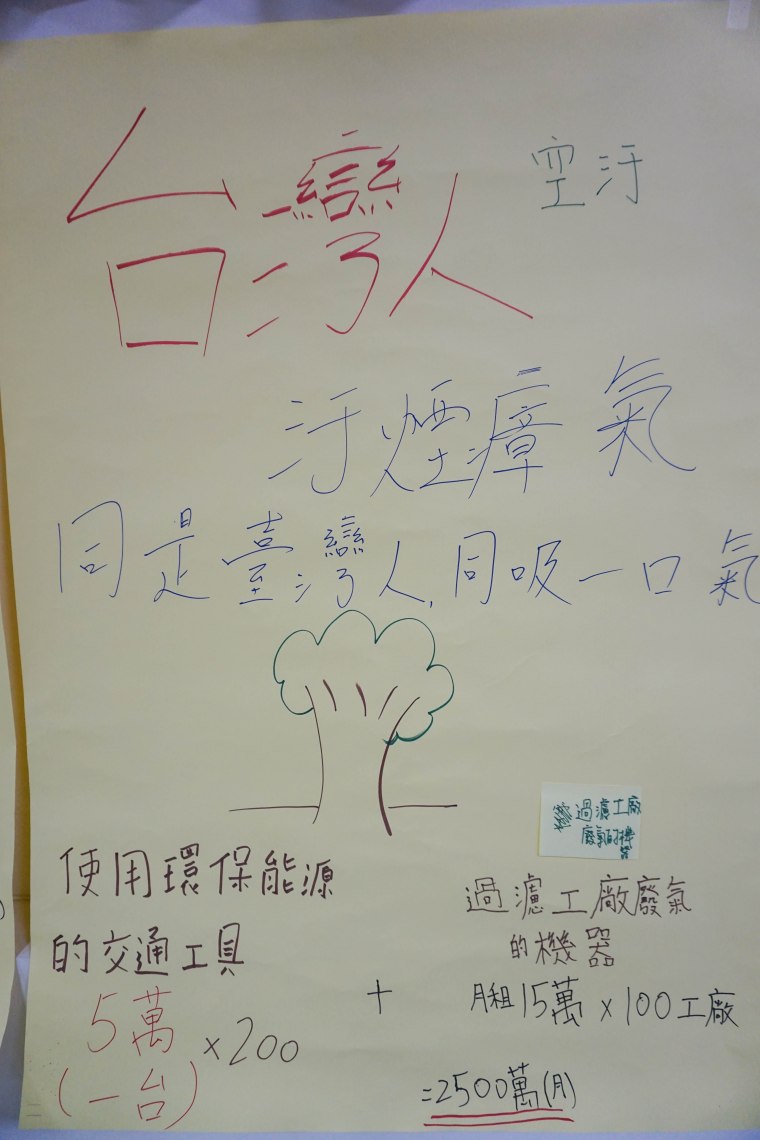 台灣人
空汙
汙煙瘴氣
同是臺灣人,同吸一口氣
過濾工廠
廢氣的機
器
使用環保能源
的交通工具
5萬
(一台)
×200
+
過濾工廠廢氣
的機器
月租15萬×100工廠
=2500萬(月)